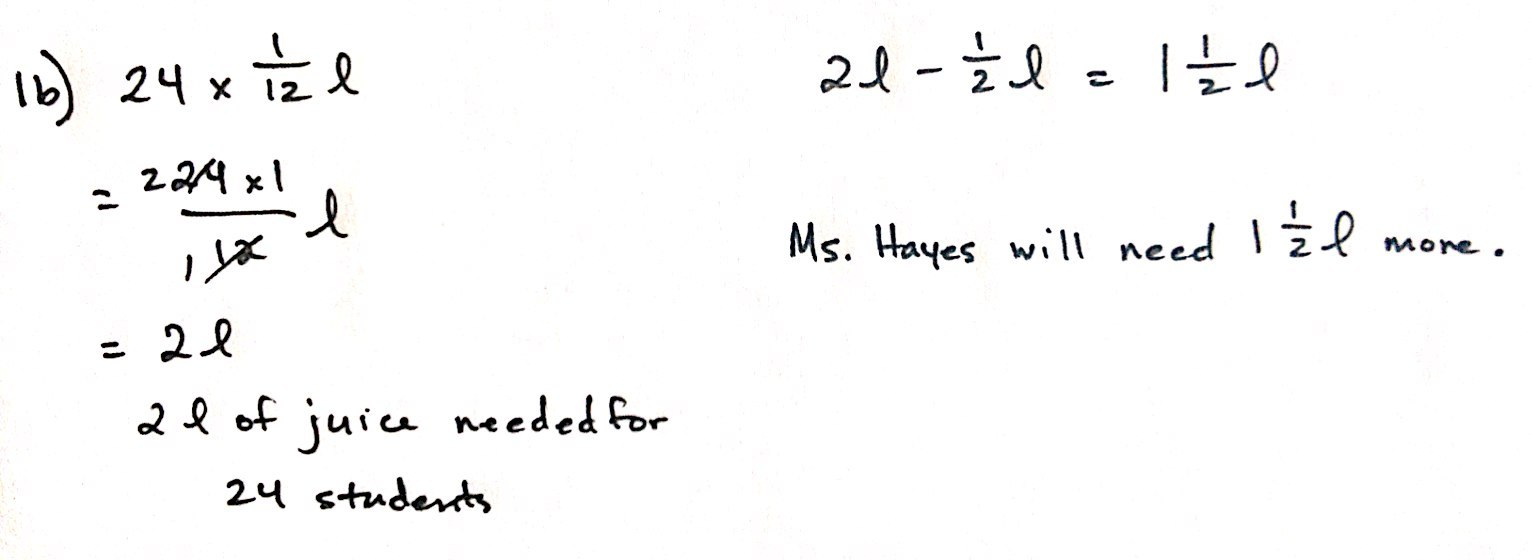 1b) 24 x 1/12 l
= 2 24 x 1 / 1 12 l
= 2 l
2 l of juice needed for
24 students
2l - 1/2 l = 1 1/2 l
Ms. Hayes will need 1 1/2 l more.